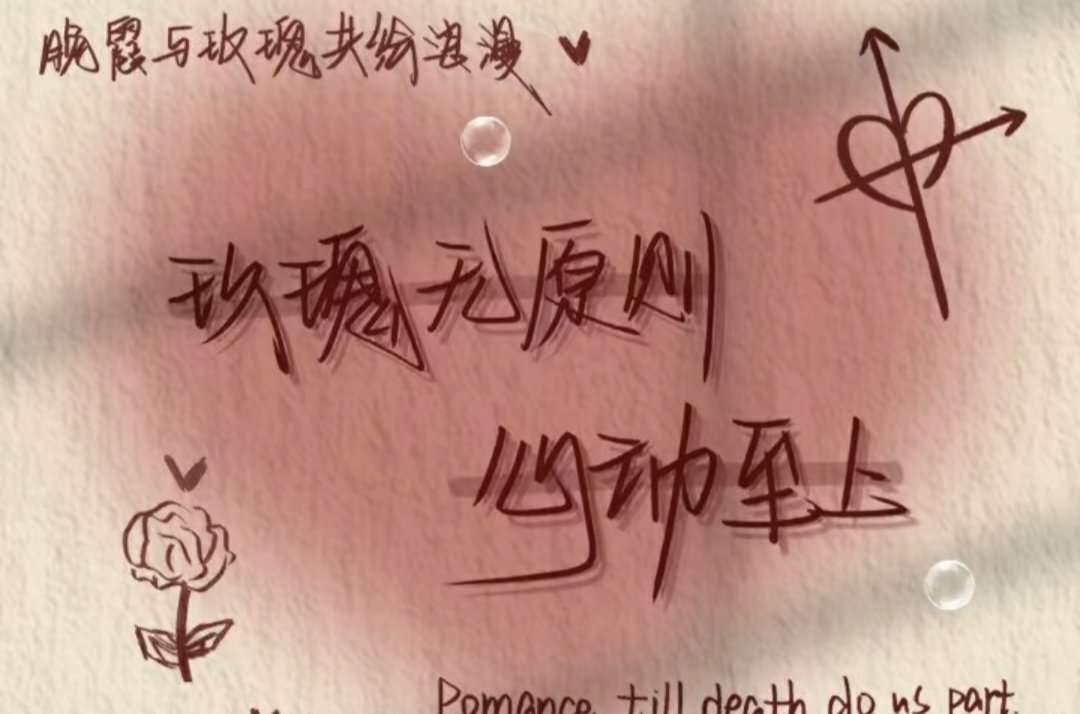 晚霞与玫瑰共绘浪漫
玫瑰无原则
心动至上
Romance till death do us part.